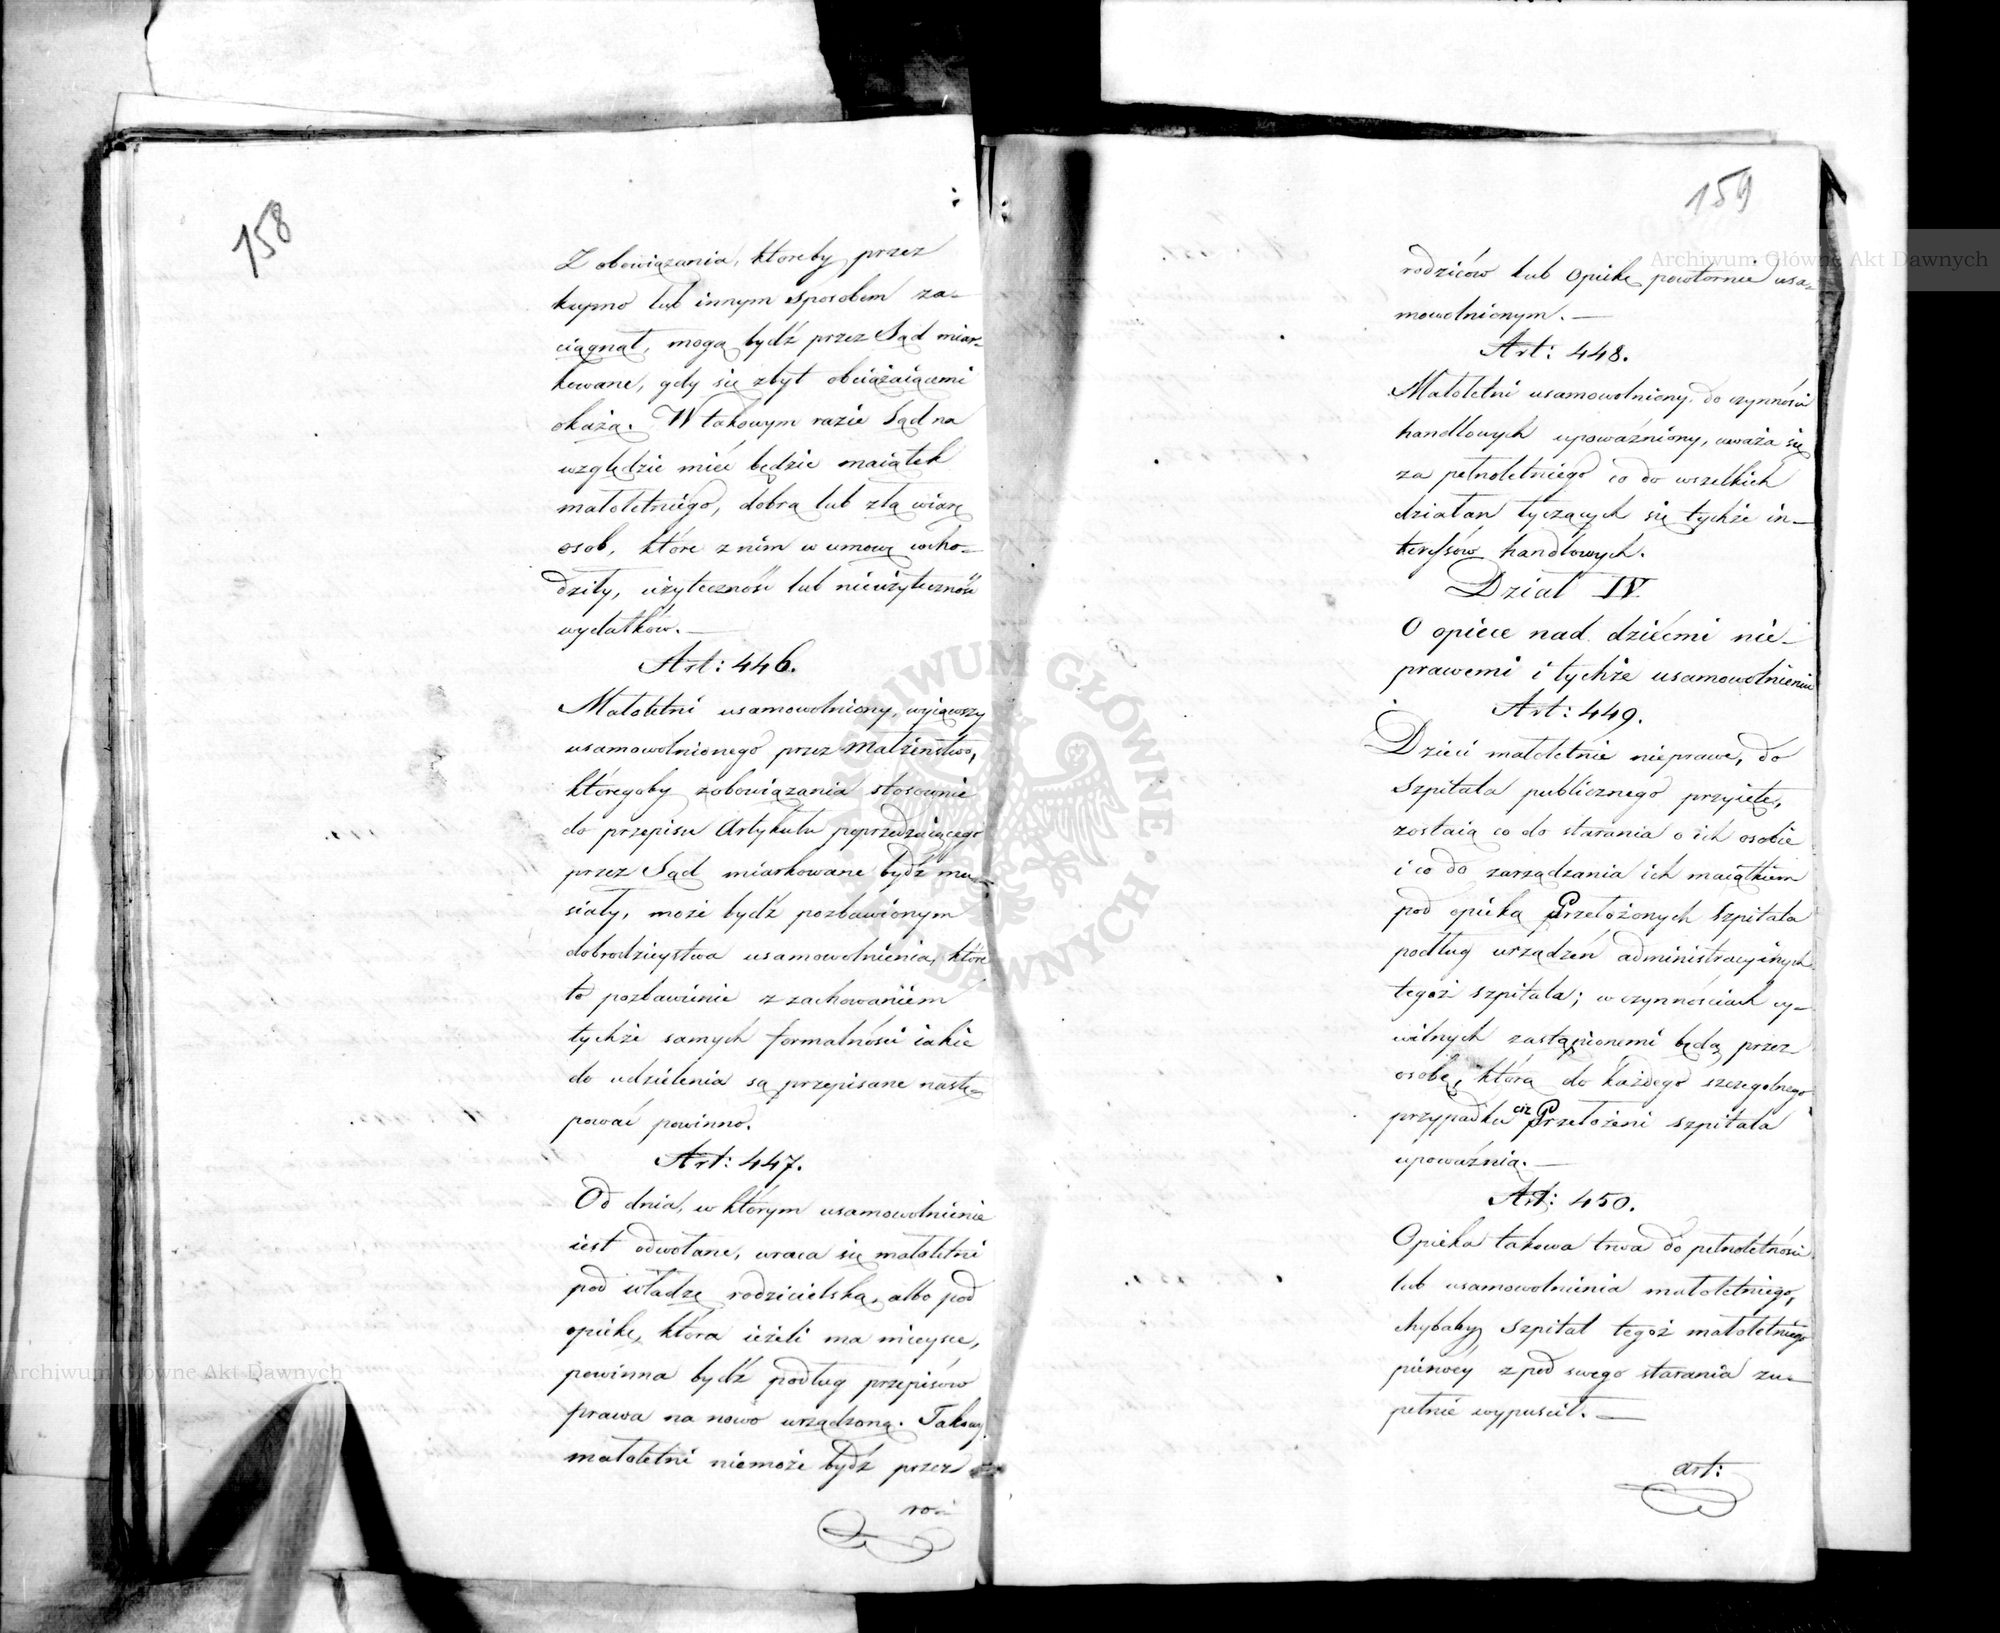 158
Zobowiązania, ktoreby przez
kupno lub innym sposobem za-
ciągnął, mogą bydź przez Sąd miar-
kowane, gdy się zbyt obciążaiącemi
okażą. W takowym razie Sąd na
względzie mieć będzie maiątek
małoletniego, dobrą lub złą wiarę
osob, które z nim w umowę wcho-
dziły, użyteczność lub nieużyteczność
wydatków. —
Art: 446.
Małoletni usamowolniony, wyiąwszy
usamowolnionego przez Małżeństwo,
któregoby zobowiązania stosownie
do przepisu Artykułu poprzedzaiącego
przez Sąd miarkowane bydź mu-
siały, może bydź pozbawionym
dobrodzieystwa usamowolnienia, które
to pozbawienie z zachowaniem
tychże samych formalności iakie
do udzielenia są przepisane nastę-
pować powinno.
Art: 447.
Od dnia, w którym usamowolnienie
iest odwołane, wraca się małoletni
pod władzę rodzicielską, albo pod
opiekę, która ieżeli ma mieysce,
powinna bydź podług przepisów
prawa na nowo urządzoną. Takowy
małoletni niemoże bydź przez
ro-
159
rodziców lub Opiekę powtornie usa-
mowolnionym. —
Art: 448.
Małoletni usamowolniony, do czynności
handlowych upoważniony, uważa się
za pełnoletniego co do wszelkich
działań tyczących się tychże in-
teressów handlowych.
Dział IV
O opiece nad dziećmi nie-
prawemi i tychże usamowolnieniu
Art: 449.
Dzieci małoletnie nieprawe, do
Szpitala publicznego przyięte,
zostaią co do starania o ich osobie
i co do zarządzania ich maiątkiem
pod opieką Przełożonych Szpitala
podług urządzeń administracyinych
tegoż szpitala; w czynnościach cy-
wilnych zastąpionemi będą przez
osobę, którą do każdego szczegolnego
przypadku ciż Przełożeni szpitala
upoważnią. —
Art: 450.
Opieka takowa trwa do pełnoletności
lub usamowolnienia małoletniego,
chybaby Szpital tegoż małoletniego
pierwey z pod swego starania zu-
pełnie wypuścił. —
art:
Archiwum Główne Akt Dawnych
Archiwum Główne Akt Dawnych
ARCHIWUM GŁÓWNE AKT DAWNYCH